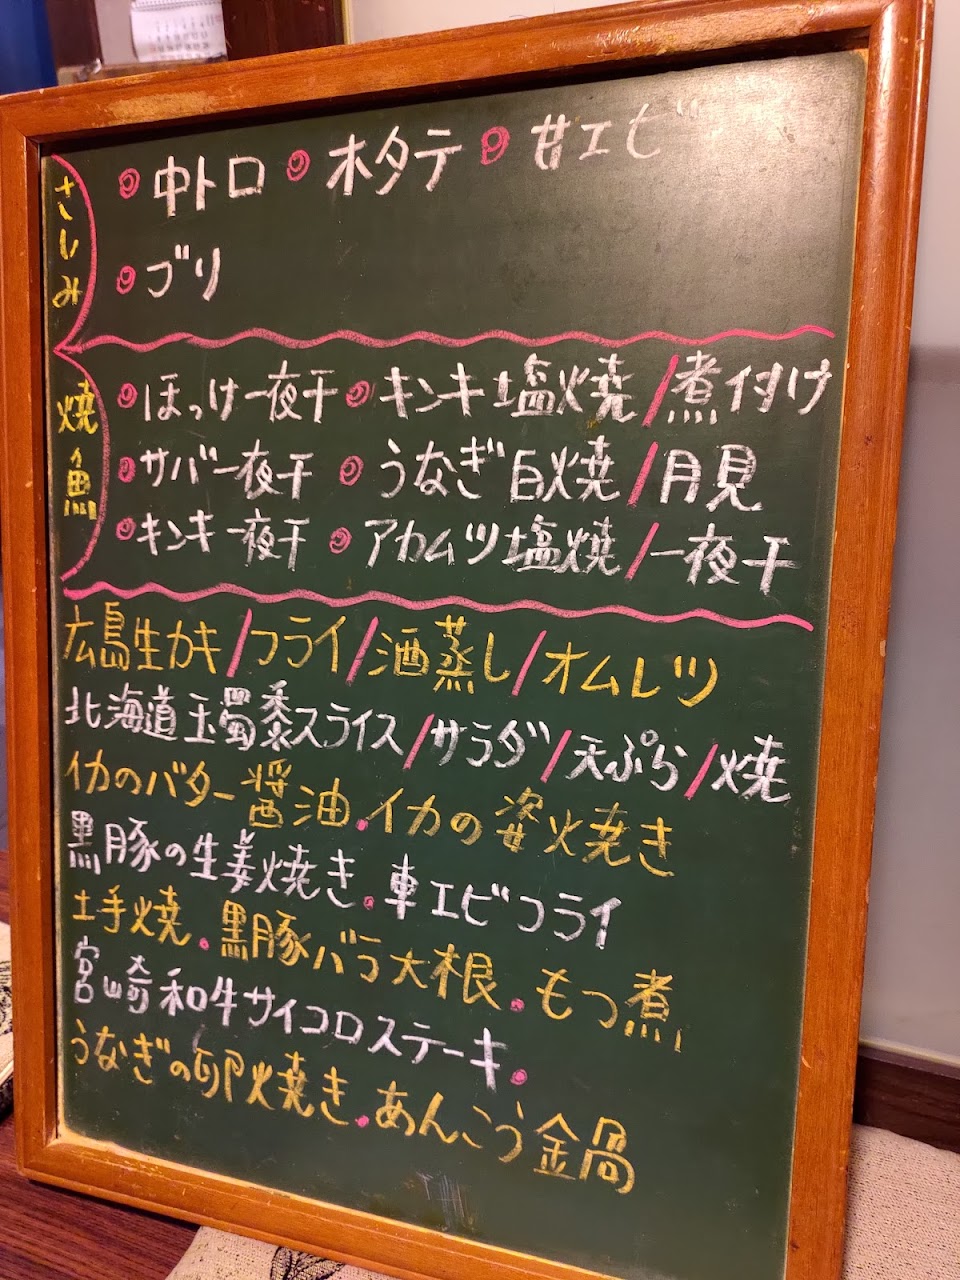 さしみ
・中トロ ・ホタテ ・甘エビ
・ブリ
焼魚
・ほっけ一夜干 ・キンキ塩焼/煮付け
・サバ一夜干 ・うなぎ白焼/月見
・キンキ一夜干 ・アカムツ塩焼/一夜干
広島生カキ/フライ/酒蒸し/オムレツ
北海道玉蜀黍スライス/サラダ/天ぷら/焼
イカのバター醤油.イカの姿焼き
黒豚の生姜焼き.車エビフライ
土手焼.黒豚バラ大根.もつ煮
宮崎和牛サイコロステーキ.
うなぎの卵焼き.あんこう金鍋